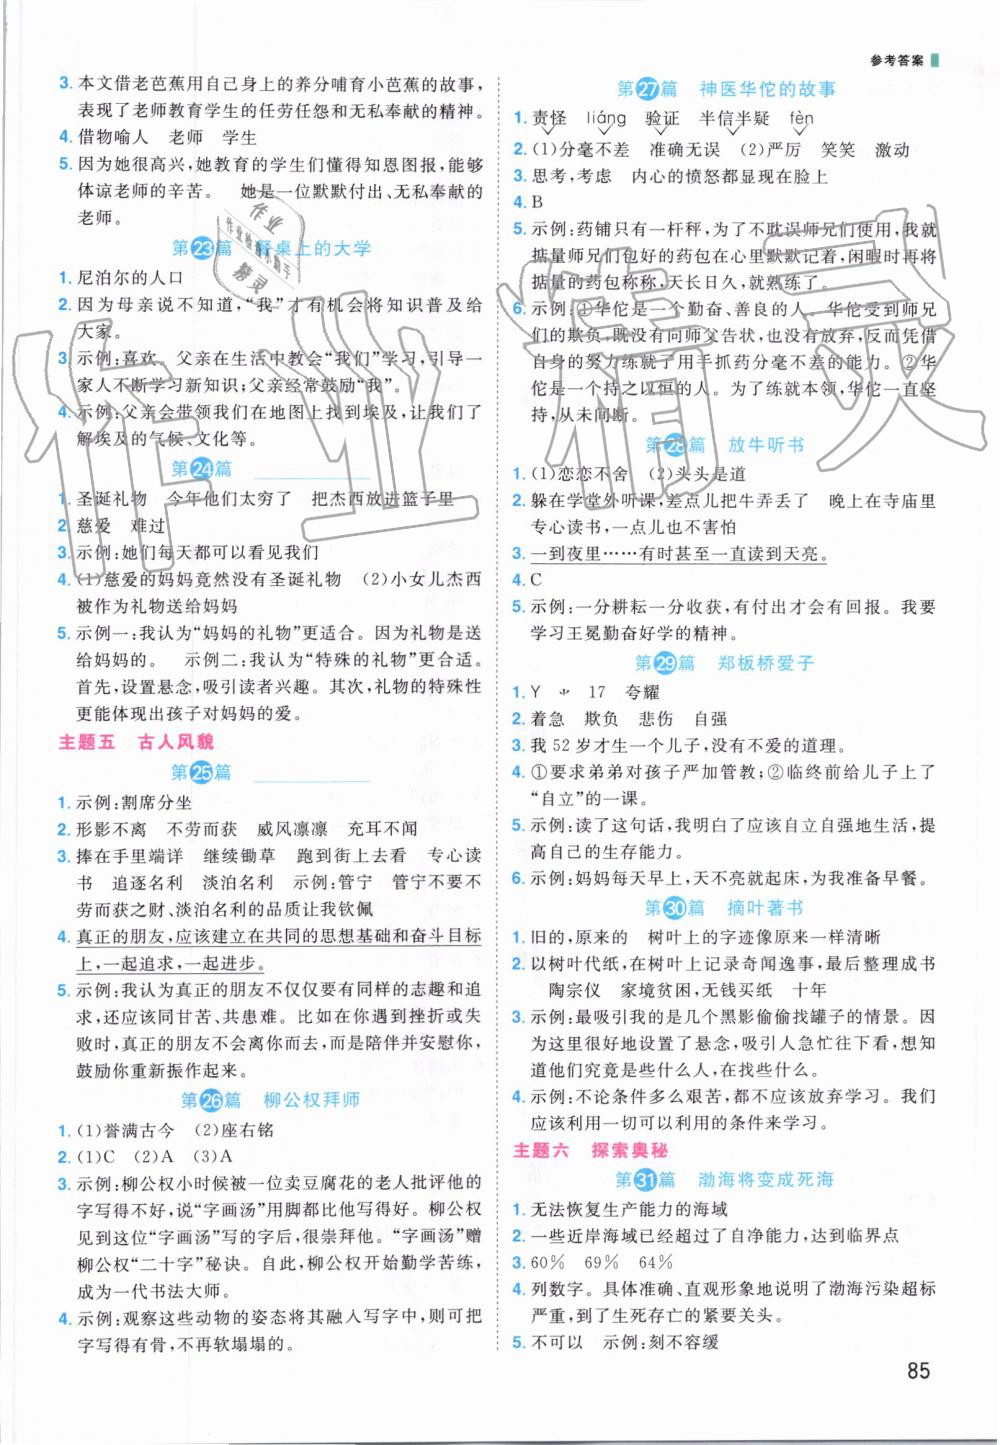 参考答案
3. 本文借老芭蕉用自己身上的养分哺育小芭蕉的故事,
表现了老师教育学生的任劳任怨和无私奉献的精神。
4. 借物喻人 老师 学生
5. 因为她很高兴,她教育的学生们懂得知恩图报,能够
体谅老师的辛苦。 她是一位默默付出、无私奉献的
老师。
第23篇 餐桌上的大学
1. 尼泊尔的人口
2. 因为母亲说不知道,“我”才有机会将知识普及给
大家。
3. 示例:喜欢。父亲在生活中教会“我们”学习,引导一
家人不断学习新知识;父亲经常鼓励“我”。
4. 示例:父亲会带领我们在地图上找到埃及,让我们了
解埃及的气候、文化等。
第24篇
1. 圣诞礼物 今年他们太穷了 把杰西放进篮子里
2. 慈爱 难过
3. 示例:她们每天都可以看见我们
4. (1)慈爱的妈妈竟然没有圣诞礼物 (2)小女儿杰西
被作为礼物送给妈妈
5. 示例一:我认为“妈妈的礼物”更适合。因为礼物是送
给妈妈的。 示例二:我认为“特殊的礼物”更合适。
首先,设置悬念,吸引读者兴趣。其次,礼物的特殊性
更能体现出孩子对妈妈的爱。
主题五 古人风貌
第25篇
1. 示例:割席分坐
2. 形影不离 不劳而获 威风凛凛 充耳不闻
3. 捧在手里端详 继续锄草 跑到街上去看 专心读
书 追逐名利 淡泊名利 示例:管宁 管宁不要不
劳而获之财、淡泊名利的品质让我钦佩
4. 真正的朋友,应该建立在共同的思想基础和奋斗目标
上,一起追求,一起进步。
5. 示例:我认为真正的朋友不仅仅要有同样的志趣和追
求,还应该同甘苦、共患难。比如在你受到挫折或失
败时,真正的朋友不会离你而去,而是陪伴并安慰你,
鼓励你重新振作起来。
第26篇 柳公权拜师
1. (1)誉满古今 (2)座右铭
2. (1)C (2)A (3)A
3. 示例:柳公权小时候被一位卖豆腐花的老人批评他的字
写得不好,说“字画汤”用脚都比他写得好。柳公权
见到这位“字画汤”写的字后,很崇拜他。“字画汤”赠
柳公权“二十字”秘诀。自此,柳公权开始勤学苦练,
成为一代书法大师。
4. 示例:观察这些动物的姿态将其融入写字中,就可把
字写得有骨,不再软塌塌的。
第27篇 神医华佗的故事
1. 责怪 liáng 验证 半信半疑 fèn
2. (1)分毫不差 准确无误 (2)严厉 笑笑 激动
3. 思考,考虑 内心的愤怒都显现在脸上
4. B
5. 示例:药铺只有一杆秤,为了不耽误师兄们使用,我就
掂量师兄们包好的药包在心里默默记着,闲暇时再将
掂量的药包称称,天长日久,就熟练了。
6. 示例:①华佗是一个勤奋、善良的人。华佗受到师兄
们的欺负,既没有向师父告状,也没有放弃,反而凭借
自身的努力练就了用手抓药分毫不差的能力。②华
佗是一个持之以恒的人。为了练就本领,华佗一直坚
持,从未间断。
第28篇 放牛听书
1. (1)恋恋不舍 (2)头头是道
2. 躲在学堂外听课,差点儿把牛弄丢了 晚上在寺庙里
专心读书,一点儿也不知道害怕
3. 一到夜里……有时甚至一直读到天亮。
4. C
5. 示例:一分耕耘一分收获,有付出才会有回报。我要
学习王冕勤奋好学的精神。
第29篇 郑板桥爱子
1. Y 17 夸耀
2. 着急 欺负 悲伤 自强
3. 我52岁才生一个儿子,没有不爱的道理。
4. ①要求弟弟对孩子严加管教;②临终前给儿子上了
“自立”的一课。
5. 示例:读了这句话,我明白了应该自立自强地生活,提
高自己的生存能力。
6. 示例:妈妈每天早上,天不亮就起床,为我准备早餐。
第30篇 摘叶著书
1. 旧的,原来的 树叶上的字迹像原来一样清晰
2. 以树叶代纸,在树叶上记录奇闻逸事,最后整理成书
陶宗仪 家境贫困,无钱买纸 十年
3. 示例:最吸引我的是几个黑影偷偷找罐子的情景。因
为这里很好地设置了悬念,吸引人急忙往下看,想知
道他们究竟是些什么人,在找些什么。
4. 示例:不论条件多么艰苦,都不应该放弃学习。我们
应该利用一切可以利用的条件来学习。
主题六 探索奥秘
第31篇 渤海将变成死海
1. 无法恢复生产能力的海域
2. 一些近岸海域已经超过了自净能力,达到临界点
3. 60% 69% 64%
4. 列数字。具体准确、直观形象地说明了渤海污染超标
严重,到了生死存亡的紧要关头。
5. 不可以 示例:刻不容缓
85
作业精灵